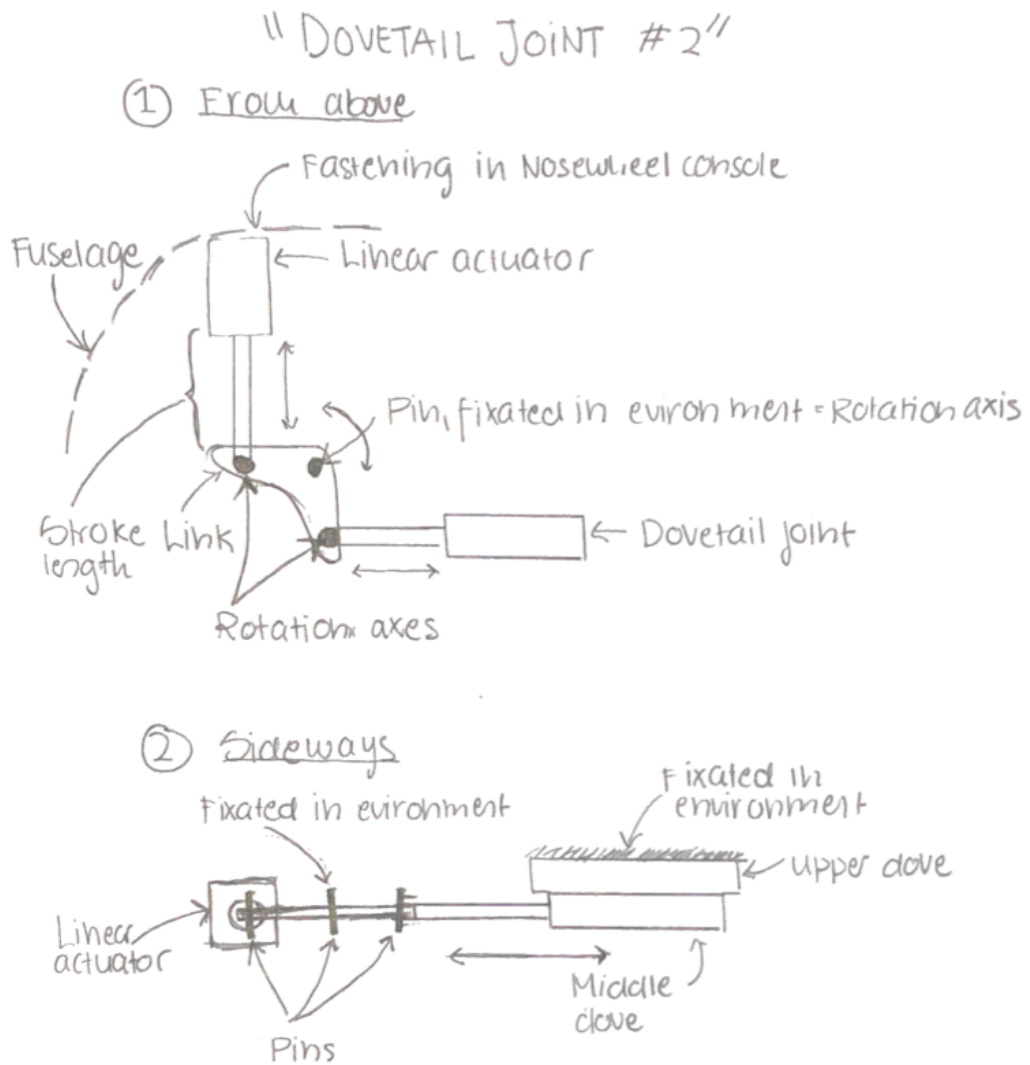 "DOVETAIL JOINT #2"
① From above
Fastening in Nosewheel console
Fuselage
Linear actuator
Pin, fixated in evironment = Rotation axis
Stroke length
Link
Dovetail joint
Rotation axes
② Sideways
Fixated in evironment
Fixated in
environment
Upper dove
Linear
actuator
Middle
dove
Pins